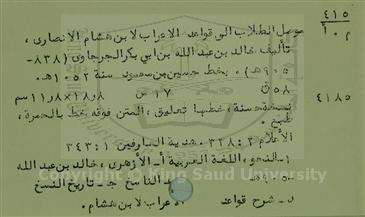 ٤١٥
م.أ
موصل الطلاب الى قواعد الاعراب لابن هشام الانصارى،
تأليف خالد بن عبد الله بن ابي بكر الجرجاوى (٨٣٨-
٩٠٥هـ). بخط حسين بن محمد سنة ١٠٥٢هـ.
٥٨ق ١٧ س ١٨٫٨×١١٫٨سم
٤١٨٥
نسخة حسنة، خطها تعليق، المتن فوقه خط بالحمرة،
طبع.
الأعلام ٢: ٣٣٨، هدية العارفين ١: ٣٤٣
١- النحو، اللغة العربية أ- الأزهرى، خالد بن عبد الله
٩٠٥هـ الناسخ جـ- تاريخ النسخ
د- شرح قواعد الاعراب لابن هشام.
Copyright © King Saud University